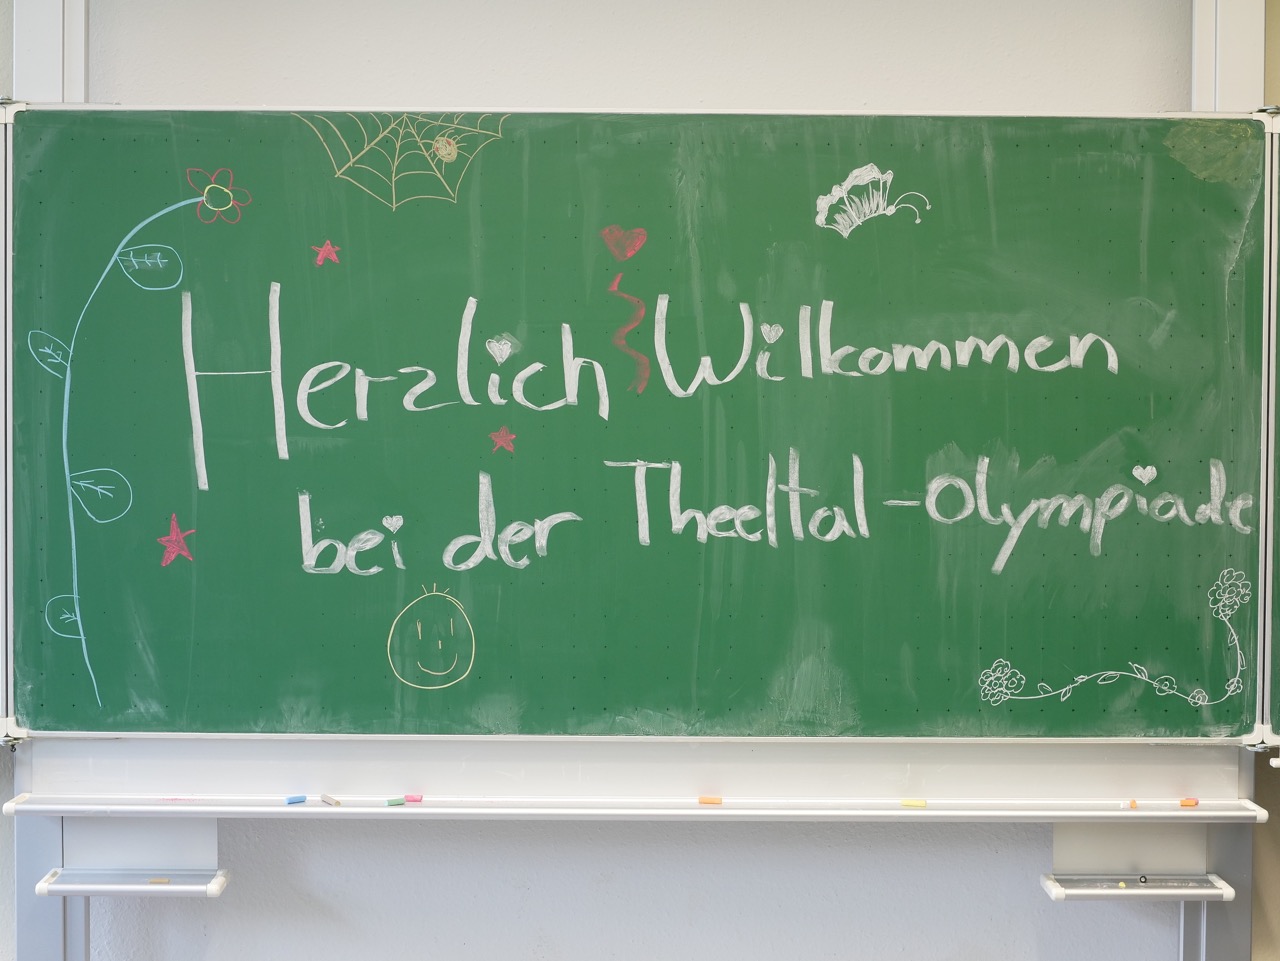 Herzlich Wilkommen
bei der Theeltal-Olympiade